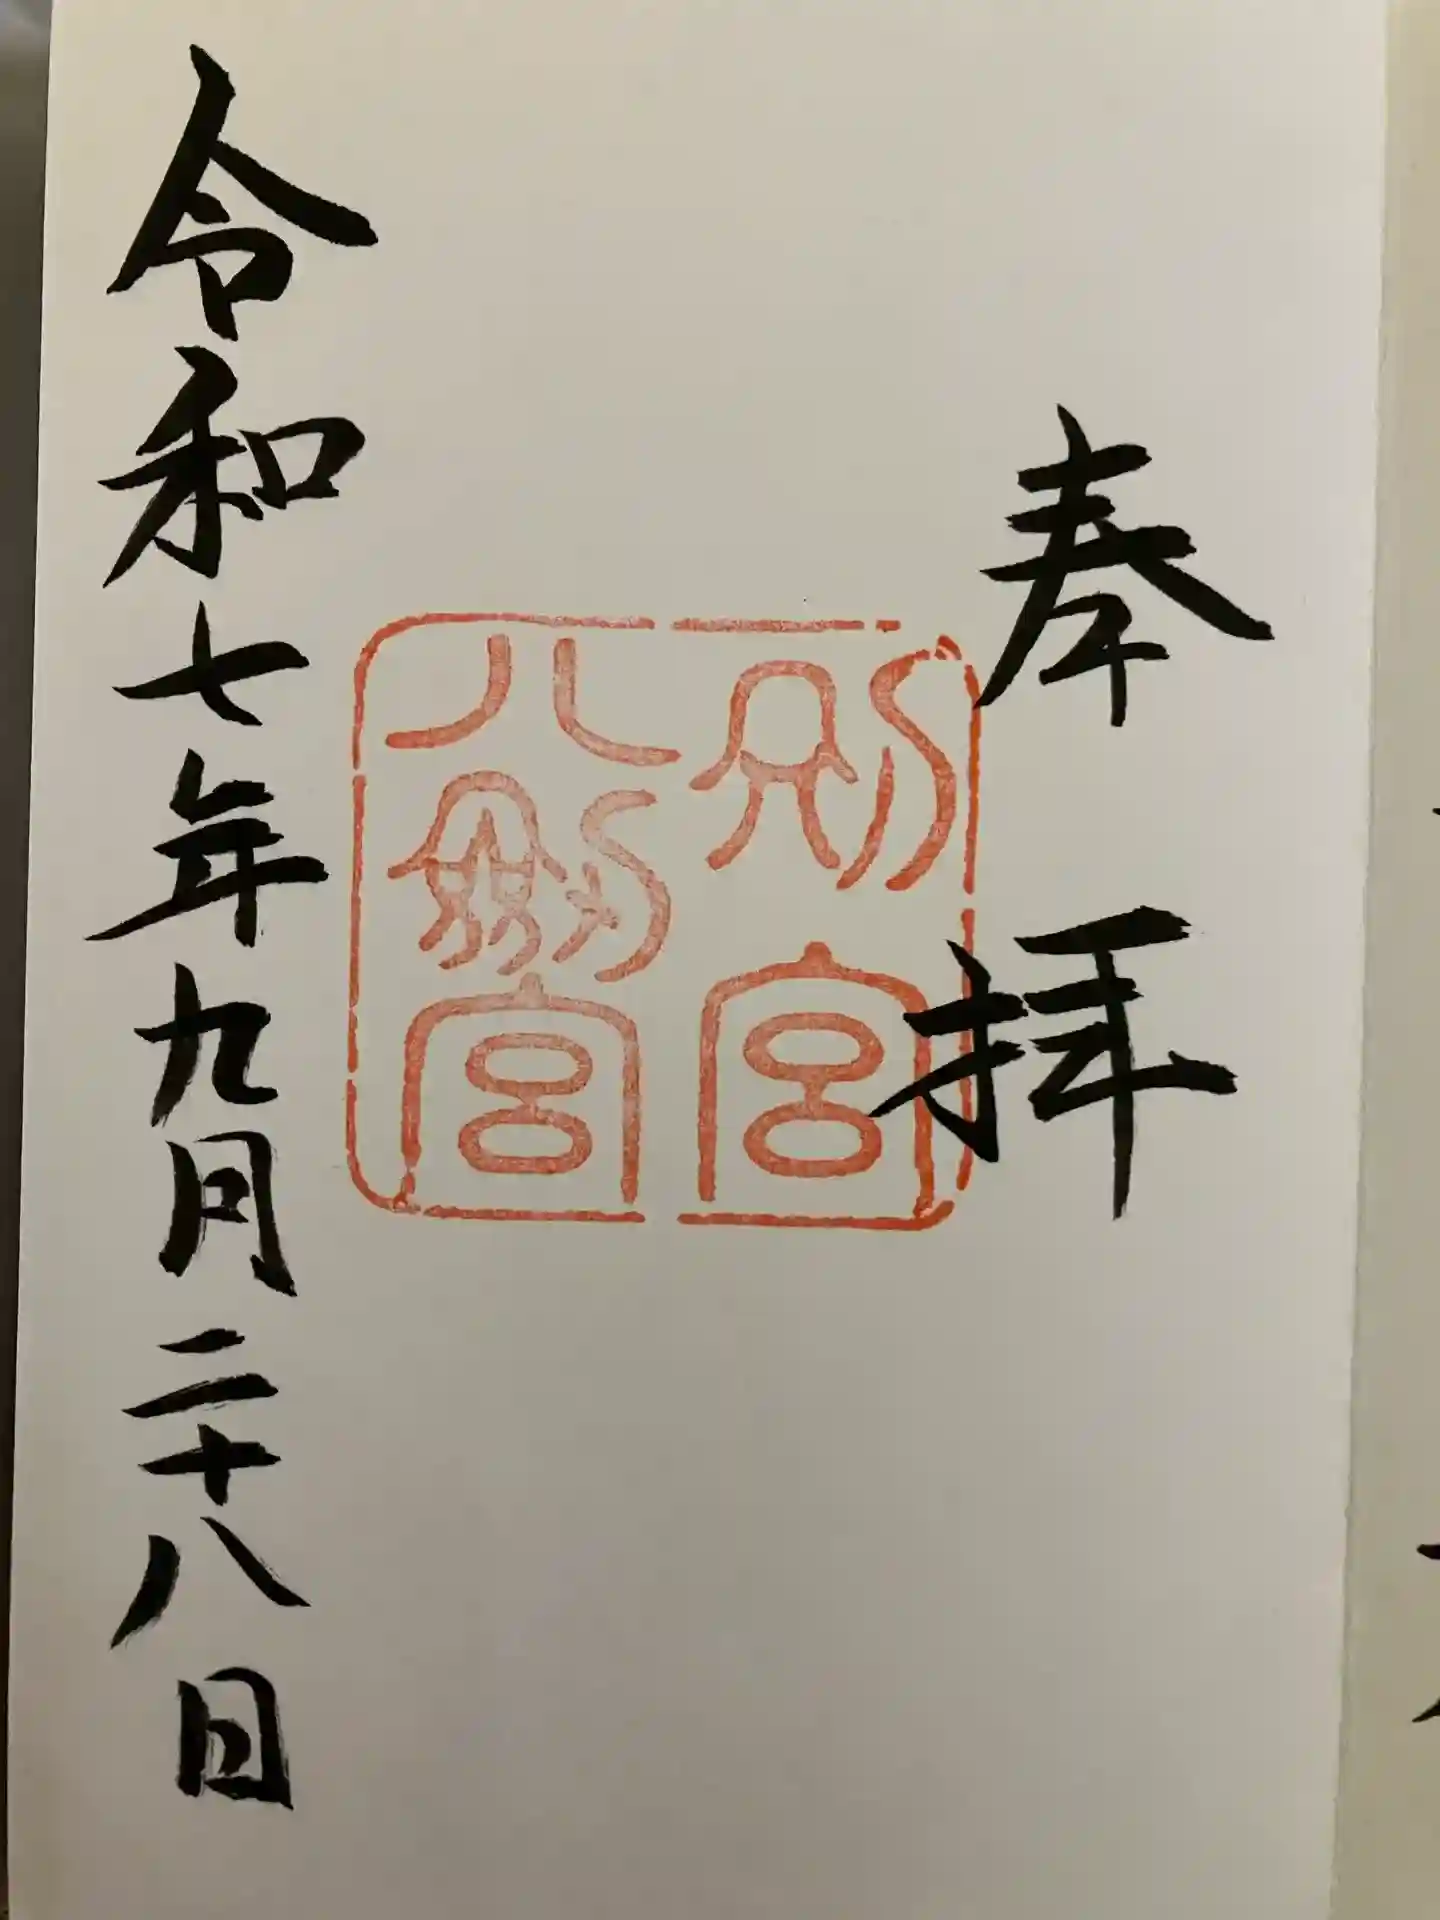 奉拝
別宮
八劔宮
令和七年九月二十八日